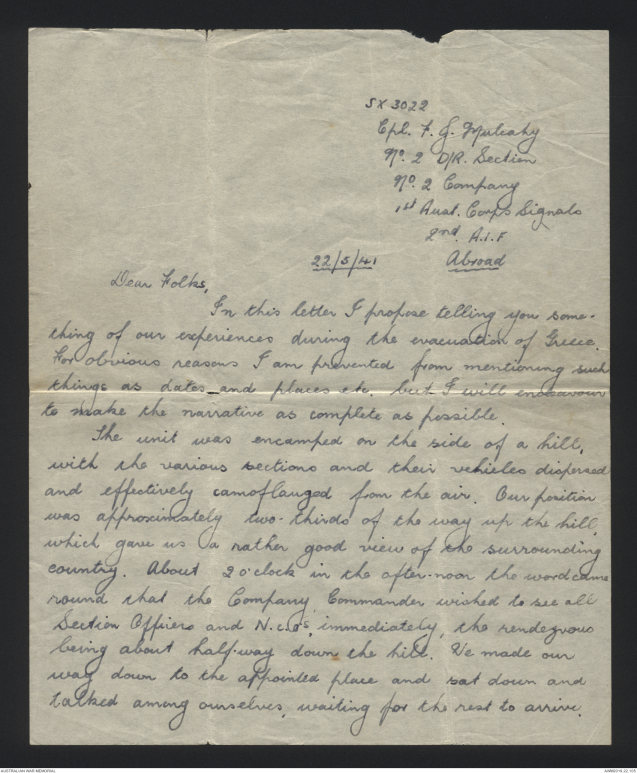 SX 3022
Cpl. F. G. Mulcahy
No. 2 D/R. Section
No. 2 Company
1st Aust. Corps Signals
2nd. A.I.F
22/5/41 Abroad
Dear Folks,
In this letter I propose telling you some-
thing of our experiences during the evacuation of Greece.
For obvious reasons I am prevented from mentioning such
things as dates and places etc. but I will endeavour
to make the narrative as complete as possible.
The unit was encamped on the side of a hill,
with the various sections and their vehicles dispersed
and effectively camoflauged from the air. Our position
was approximately two-thirds of the way up the hill,
which gave us a rather good view of the surrounding
country. About 2 o'clock in the after-noon the word came
round that the Company Commander wished to see all
Section Officers and N.C.O's, immediately, the rendezvous
being about half-way down the hill. We made our
way down to the appointed place and sat down and
talked among ourselves, waiting for the rest to arrive.
AUSTRALIAN WAR MEMORIAL